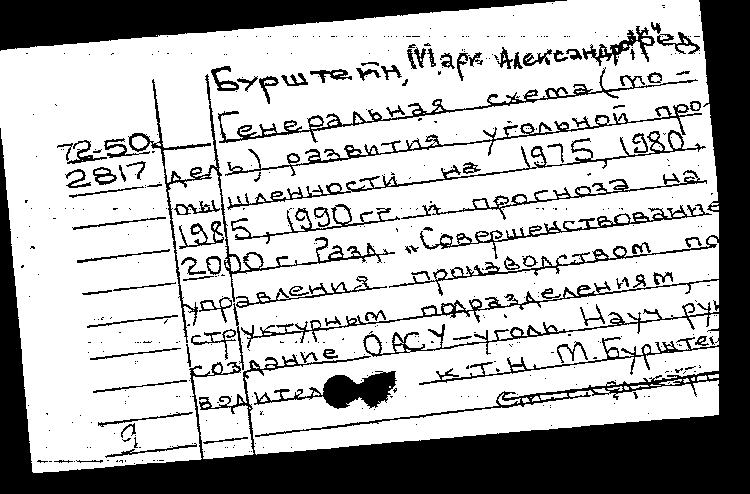 Бурштейн, Марк Александрович, ред
Генеральная схема (мо-
72-50
2817
дель) развития угольной про-
мышленности на 1975, 1980,
1985, 1990 гг. и прогноза на
2000 г. Разд. „Совершенствование
управления производством по
структурным подразделениям,
создание ОАСУ-уголь. Науч. рук
водител к.т.н. М. Бурштей
См. след карт
9